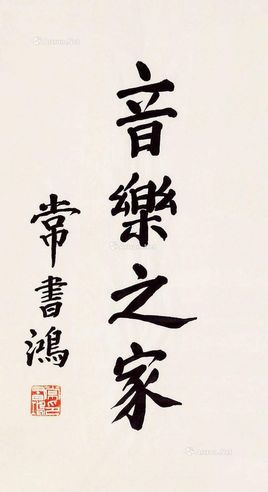 音樂之家
常書鴻